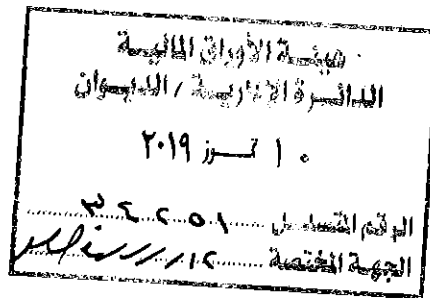 هيئة الأوراق المالية
الدائرة الإدارية / الديوان
١٠ تموز ٢٠١٩
الرقم المتسلسل
الجهة المختصة